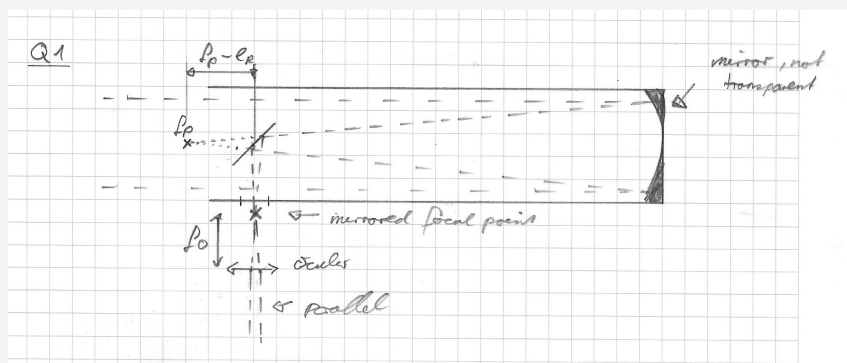 Q1
fp - eR
mirror, not
transparent
fp
mirrored focal point
fo
ocular
parallel